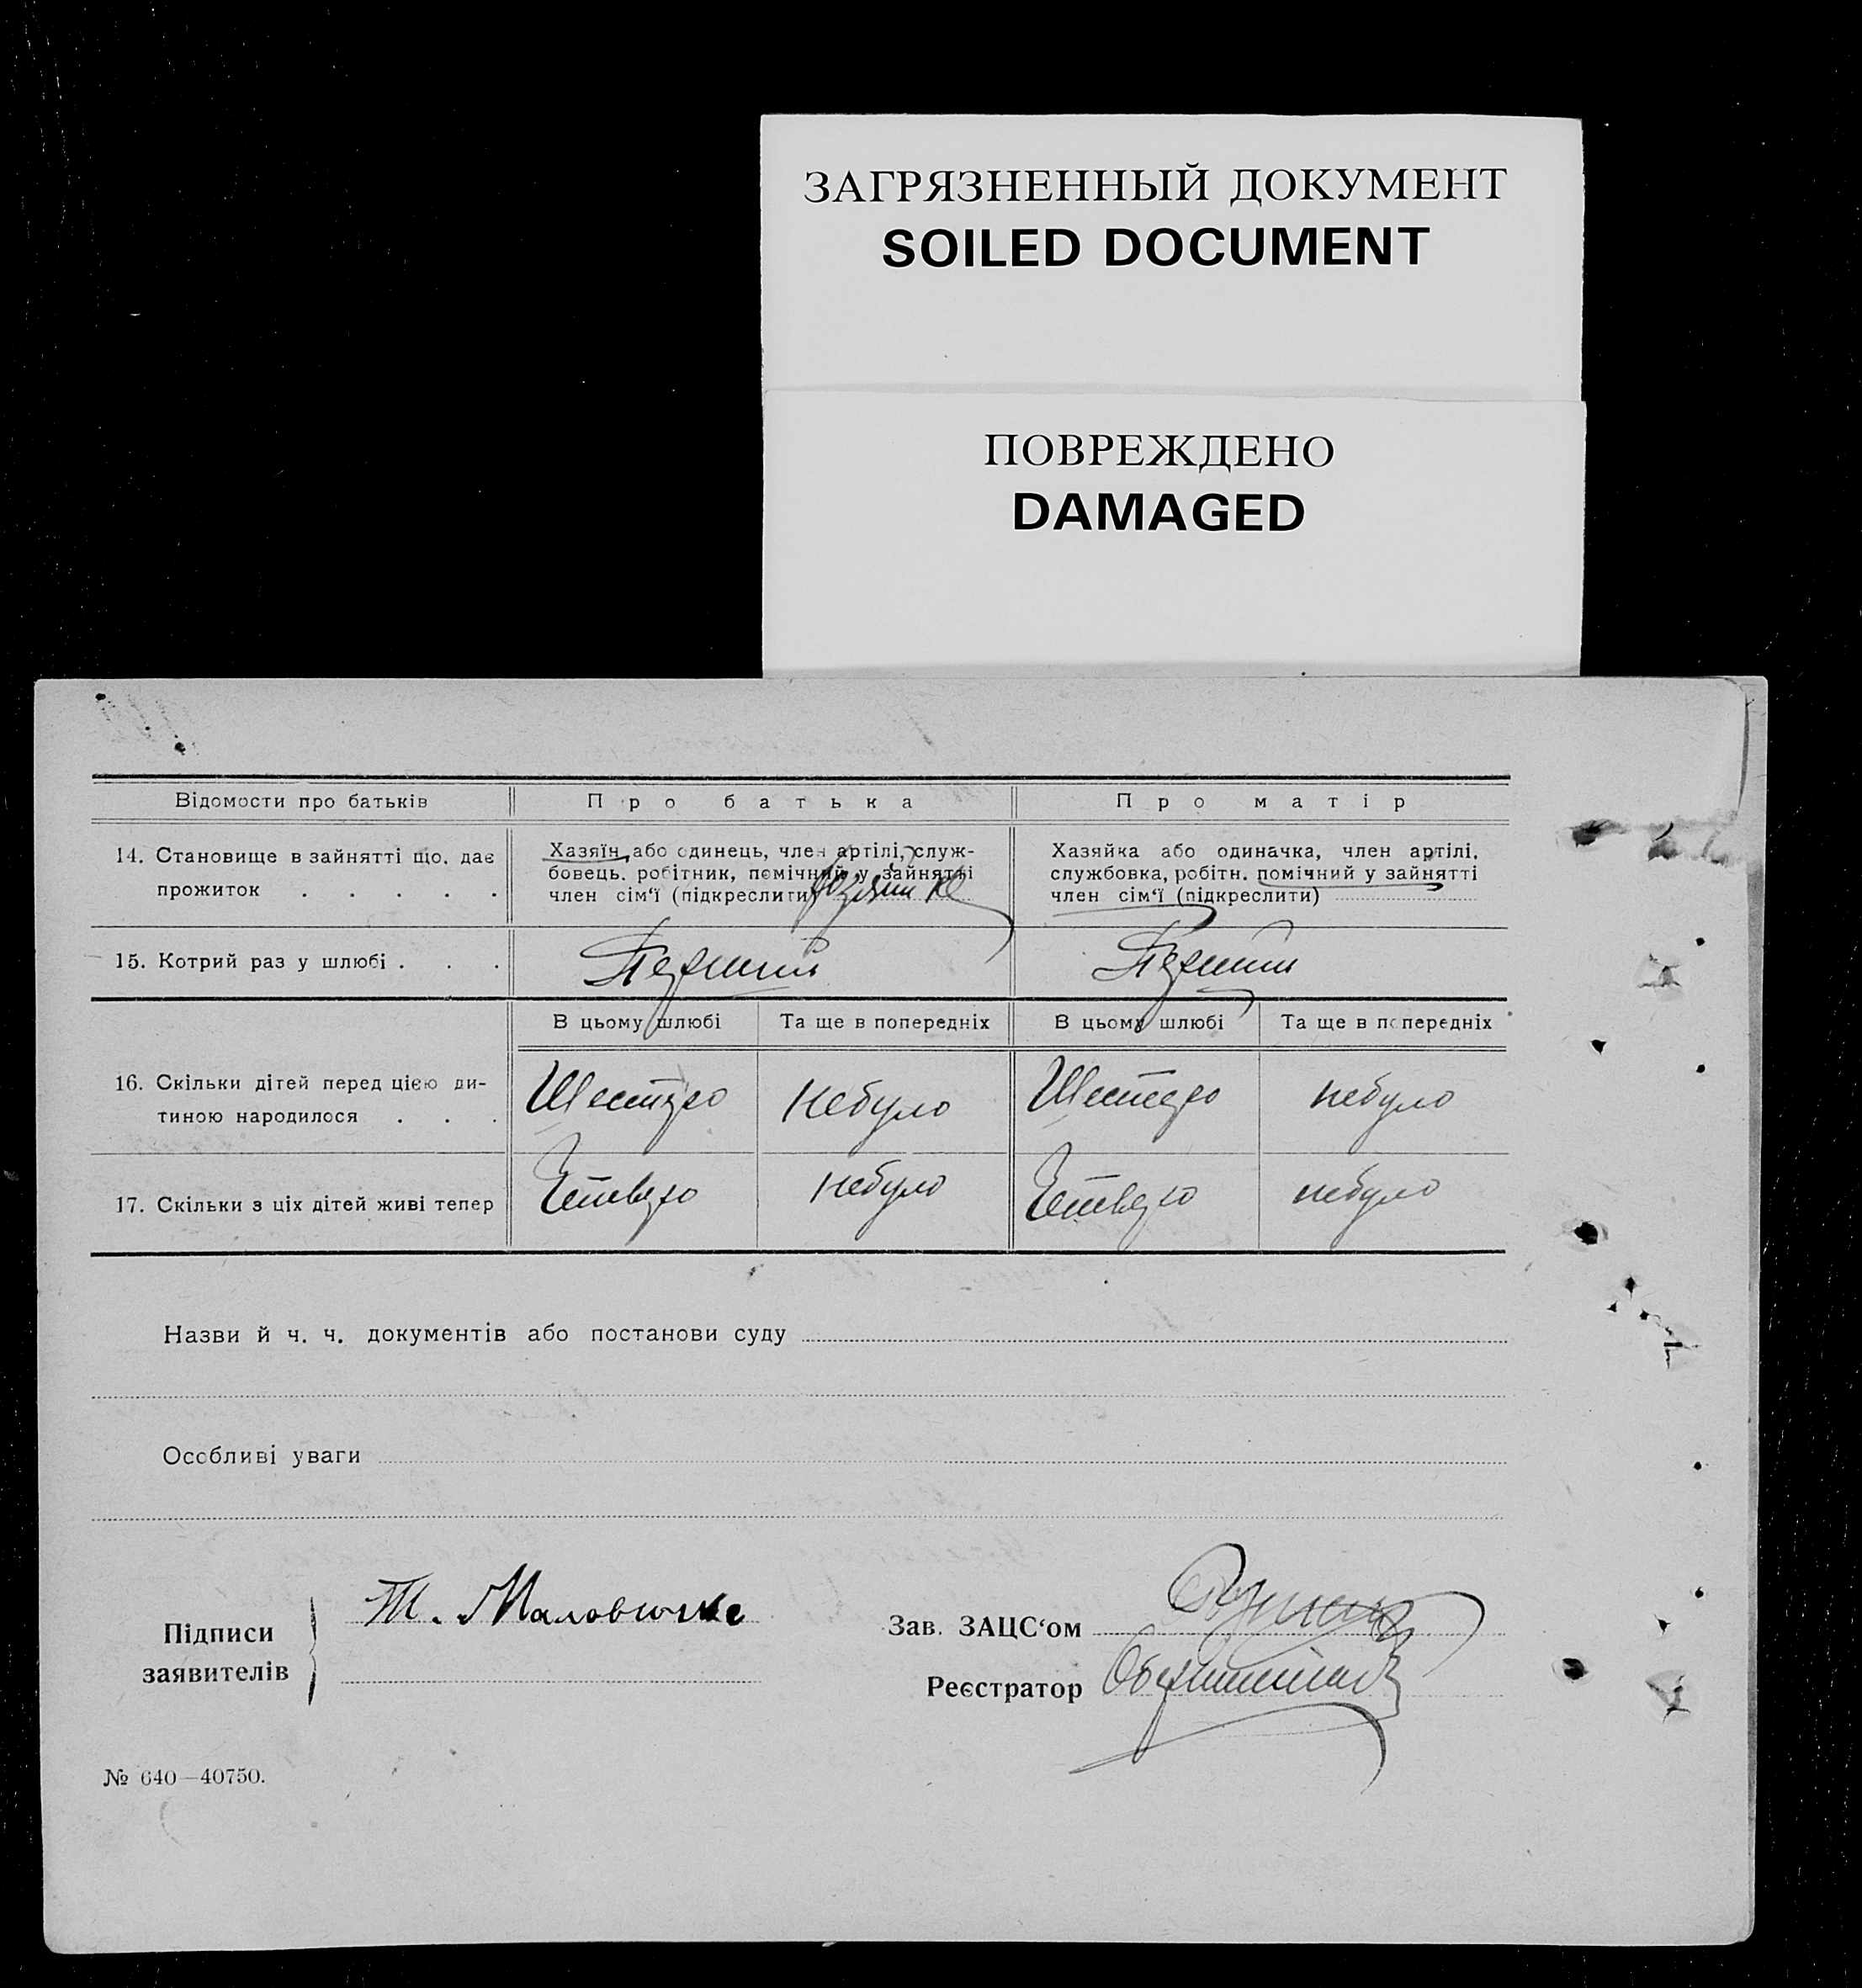 ЗАГРЯЗНЕННЫЙ ДОКУМЕНТ
SOILED DOCUMENT
ПОВРЕЖДЕНО
DAMAGED
Відомости про батьків Про батька Про матір
14. Становище в зайнятті що, дає прожиток . . . . .
Хазяїн або одинець, член артілі, служ-
бовець, робітник, помічний у зайнятті
член сім‘ї (підкреслити)
Хазяйка або одиначка, член артілі,
службовка, робітн. помічний у зайнятті
член сім‘ї (підкреслити)
15. Котрий раз у шлюбі . . . Перший Перший
В цьому шлюбі Та ще в попередніх В цьому шлюбі Та ще в попередніх
16. Скільки дітей перед цією ди-
тиною народилося . . . Шестеро небуло Шестеро небуло
17. Скільки з ціх дітей живі тепер Четверо небуло Четверо небуло
Назви й ч. ч. документів або постанови суду
Особливі уваги
Підписи
заявителів
Т. Маловичке
Зав. ЗАЦС‘ом
Реєстратор
№ 640—40750.